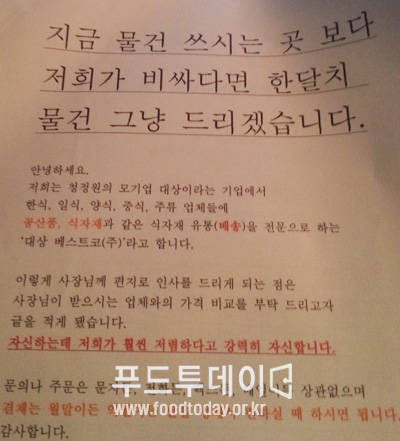 지금 물건 쓰시는 곳 보다
저희가 비싸다면 한달치
물건 그냥 드리겠습니다.
안녕하세요.
저희는 청정원의 모기업 대상이라는 기업에서
한식, 일식, 양식, 중식, 주류 업체들에
공산품, 식자재과 같은 식자재 유통(배송)을 전문으로 하는
'대상 베스트코(주)'라고 합니다.
이렇게 사장님께 편지로 인사를 드리게 되는 점은
사장님이 받으시는 업체와의 가격 비교를 부탁 드리고자
글을 적게 됐습니다.
자신하는데 저희가 훨씬 저렴하다고 강력히 자신합니다.
푸드투데이
문의나 주문은 상관없으며
www.foodtoday.or.kr
결제는 월말이든 때 하시면 됩니다.
감사합니다.